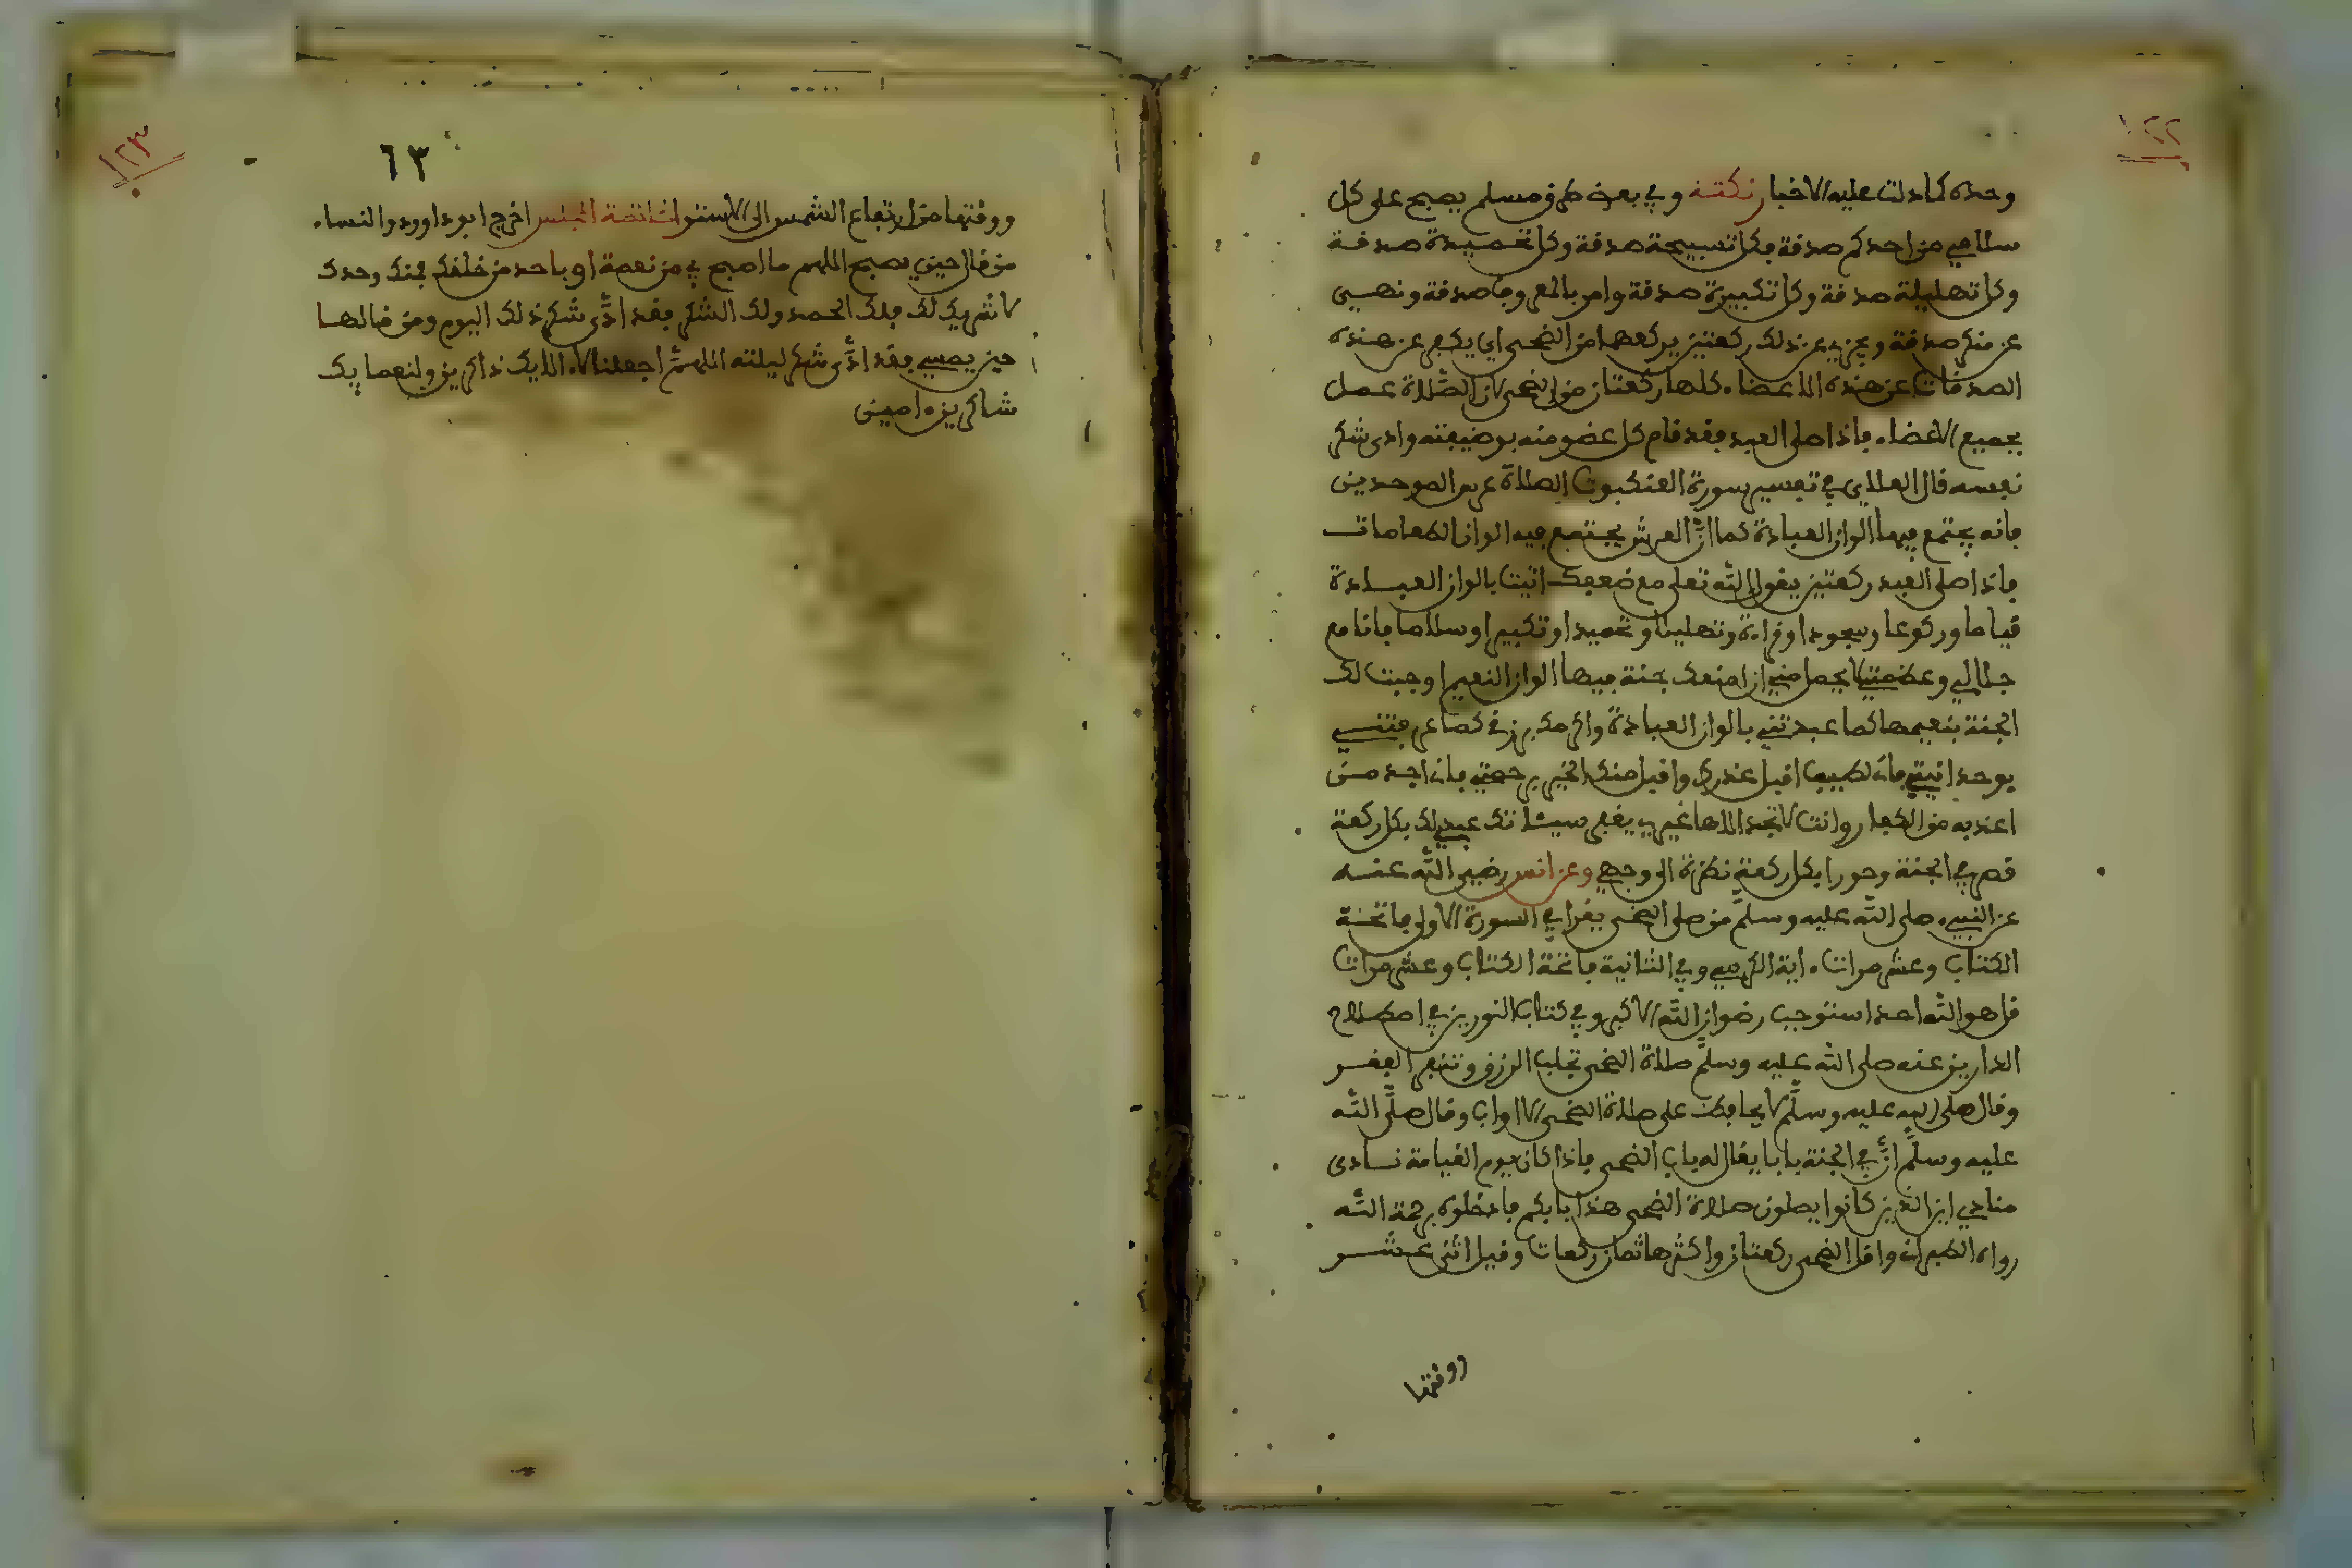 ١٢٢
وحده كما دلت عليه الاخبار نكتة وفي بعض طرق مسلم يصبح على كل
سلامي من احدكم صدقة فكل تسبيحة صدقة وكل تحميدة صدقة
وكل تهليلة صدقة وكل تكبيرة صدقة وامر بالمعروف صدقة ونهيي
عن منكر صدقة ويجزيء عن ذلك ركعتين يركعهما من الضحى اي يكفي عن هذه
الصدقات عن هذه الاعضاء كلها ركعتان من الضحى لان الصلاة عمل
بجميع الاعضاء فاذا صلى العبد فقد قام كل عضو منه بوضيفته وادى شكر
نفسه قال العلاي في تفسير سورة العنكبوت الصلاة عرس الموحدين
فانه يجتمع فيها الوان العبادة كما ان العرش يجتمع فيه الوان الطعامات
فاذا صلى العبد ركعتين يقول الله تعلى مع ضعفك اتيت بالوان العبادة
قياما وركوعا وسجودا وقراءة وتهليلا وتحميدا وتكبيرا وسلاما فانا مع
جلالي وعظمتي لا يجمل مني ان امنعك جنة فيها الوان النعيم اوجبت لك
الجنة بنعيمها كما عبدتني بالوان العبادة واكرمك برزقي كما عرفتني
بوحدانيتي فاني لطيف اقبل عذرك واقبل منك الخير برحمتي فاني اجد من
اعذبه من الكفار وانت لا تجد الاها غيري يغفر سيئاتك عبدي لك بكل ركعة
قصر في الجنة وحورا بكل ركعة نظرة الى وجهي وعن انس رضي الله عنه
عن النبيء صلى الله عليه وسلم من صلى الضحى يقرا في السورة الاولى فاتحة
الكتاب وعشر مرات ءاية الكرسي وفي الثانية فاتحة الكتاب وعشر مرات
قل هو الله احد استوجب رضوان الله الاكبر وفي كتاب النورين في اصطلاح
الدارين عنه صلى الله عليه وسلم صلاة الضحى تجلب الرزق وتنفي الفقر
وقال صلى الله عليه وسلم لا يحافظ على صلاة الضحى الا اواب وقال صلى الله
عليه وسلم ان في الجنة بابا يقال له باب الضحى فاذا كان يوم القيامة نادى
منادي اين الذين كانوا يصلون صلاة الضحى هذا بابكم فادخلوه برحمة الله
رواه الطبراني واقل الضحى ركعتان واكثرها ثمان ركعات وقيل اثنى عشر
ووقتها
١٢٣
٦٣
ووقتها من ارتفاع الشمس الى الاستواء خاتمة المجلس اخرج ابو داوود والنساء
من قال حين يصبح اللهم ما اصبح بي من نعمة او باحد من خلقك فمنك وحدك
لا شريك لك فلك الحمد ولك الشكر فقد ادى شكر ذلك اليوم ومن قالها
حين يمسي فقد ادى شكر ليلته اللهم اجعلنا لالايك ذاكرين ولنعمايك
شاكرين ءامين